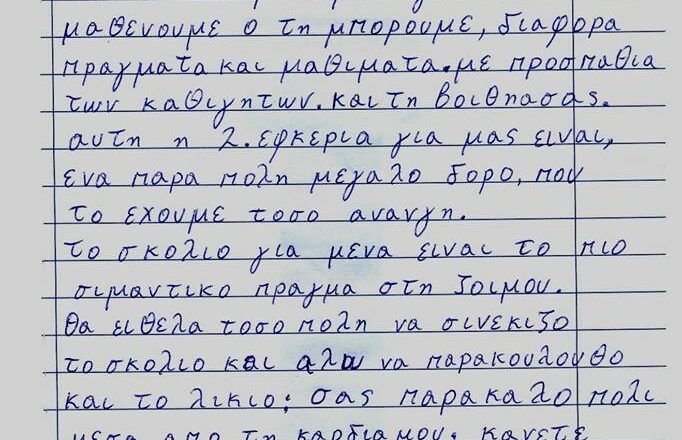 μαθενουμε ο τη μπορουμε, διαφορα
πραγματα και μαθιματα. με προσπαθια
των καθιγητων. και τη βοιθησας.
αυτη η 2. εφκερια για μας ειναι,
ενα παρα πολη μεγαλο δορο, που
το εχουμε τοσο ανανγη.
το σκολιο για μενα ειναι το πιο
σιμαντικο πραγμα στη ζοιμου.
θα ειθελα τοσο πολη να σινεκιζο
το σκολιο και αλω να παρακουλουθο
και το λικιο; σας παρακαλο πολι
μεσα απο τη καρδιαμου. κανετε